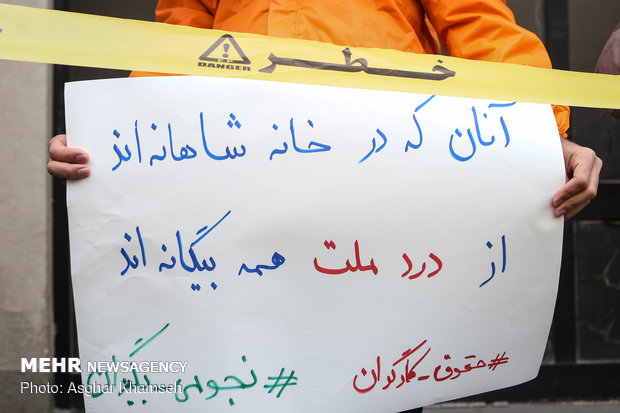 خطر
DANGER
آنان که در خانه شاهانه اند
از درد ملت همه بیگانه اند
#حقوق-کارگران
#نجومی بگیران
MEHR NEWSAGENCY
Photo: Asghar Khamseh